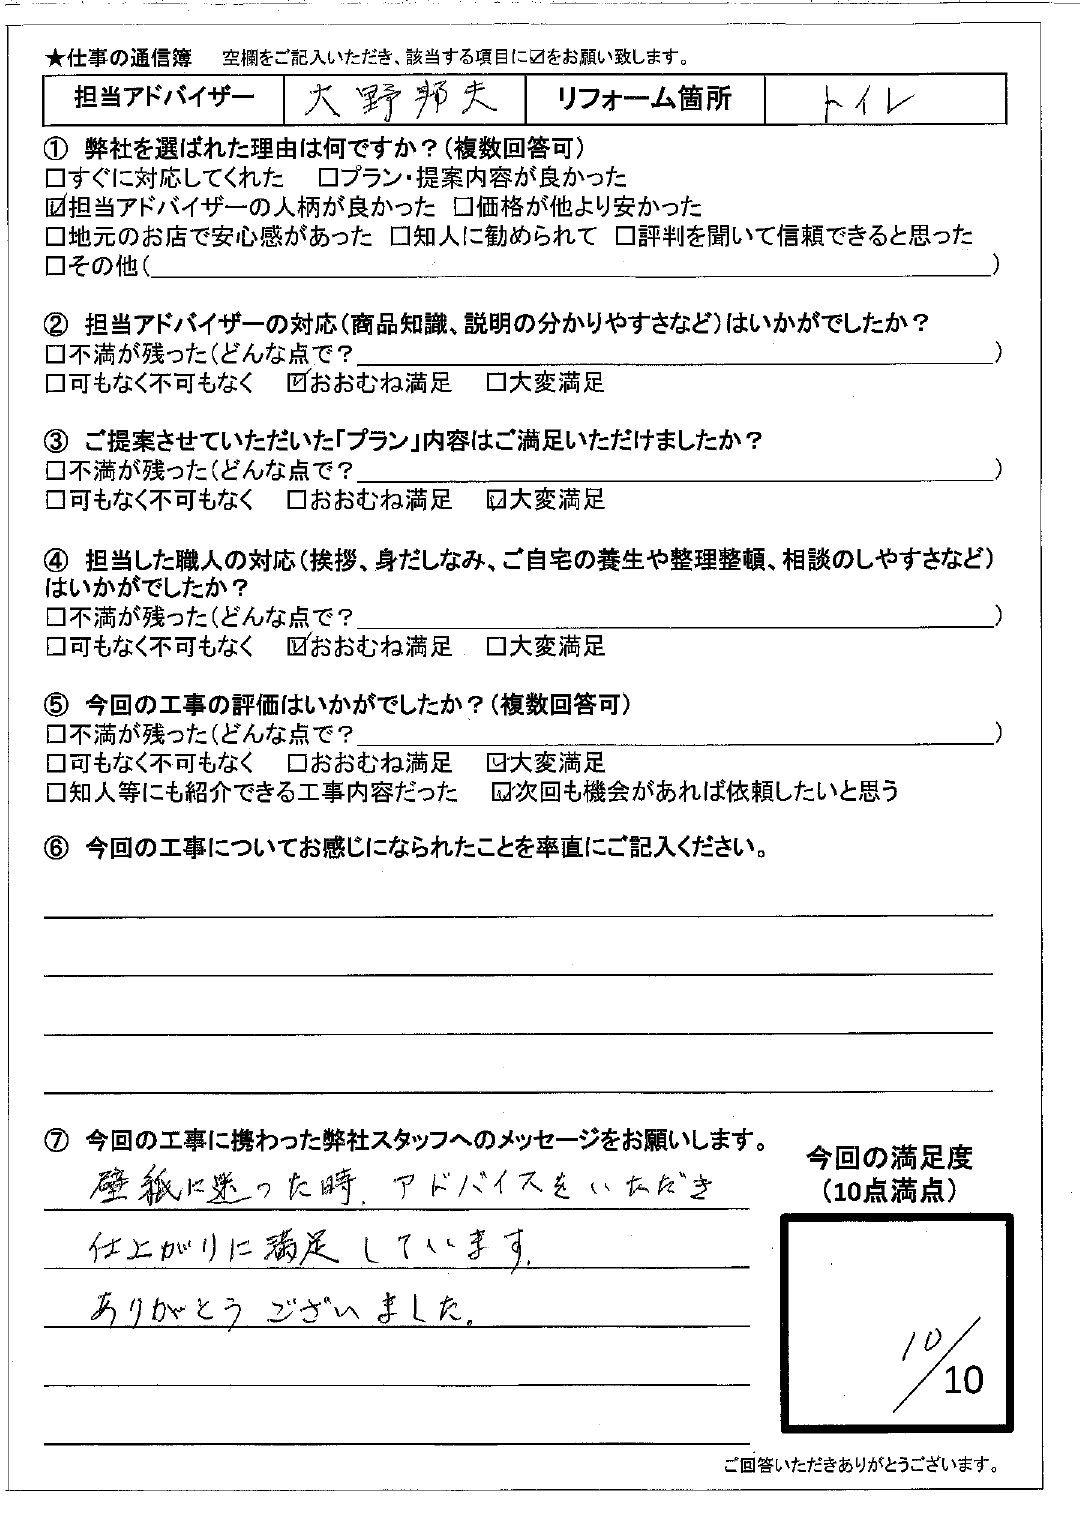 ★仕事の通信簿 空欄をご記入いただき、該当する項目に☑をお願い致します。
担当アドバイザー 大野邦夫 リフォーム箇所 トイレ
① 弊社を選ばれた理由は何ですか？(複数回答可)
□すぐに対応してくれた □プラン・提案内容が良かった
☑担当アドバイザーの人柄が良かった □価格が他より安かった
□地元のお店で安心感があった □知人に勧められて □評判を聞いて信頼できると思った
□その他( )
② 担当アドバイザーの対応(商品知識、説明の分かりやすさなど)はいかがでしたか？
□不満が残った(どんな点で？ )
□可もなく不可もなく ☑おおむね満足 □大変満足
③ ご提案させていただいた「プラン」内容はご満足いただけましたか？
□不満が残った(どんな点で？ )
□可もなく不可もなく □おおむね満足 ☑大変満足
④ 担当した職人の対応(挨拶、身だしなみ、ご自宅の養生や整理整頓、相談のしやすさなど)
はいかがでしたか？
□不満が残った(どんな点で？ )
□可もなく不可もなく ☑おおむね満足 □大変満足
⑤ 今回の工事の評価はいかがでしたか？(複数回答可)
□不満が残った(どんな点で？ )
□可もなく不可もなく □おおむね満足 ☑大変満足
□知人等にも紹介できる工事内容だった ☑次回も機会があれば依頼したいと思う
⑥ 今回の工事についてお感じになられたことを率直にご記入ください。
⑦ 今回の工事に携わった弊社スタッフへのメッセージをお願いします。
壁紙に迷った時、アドバイスをいただき
仕上がりに満足しています。
ありがとうございました。
今回の満足度
(10点満点)
10/10
ご回答いただきありがとうございます。